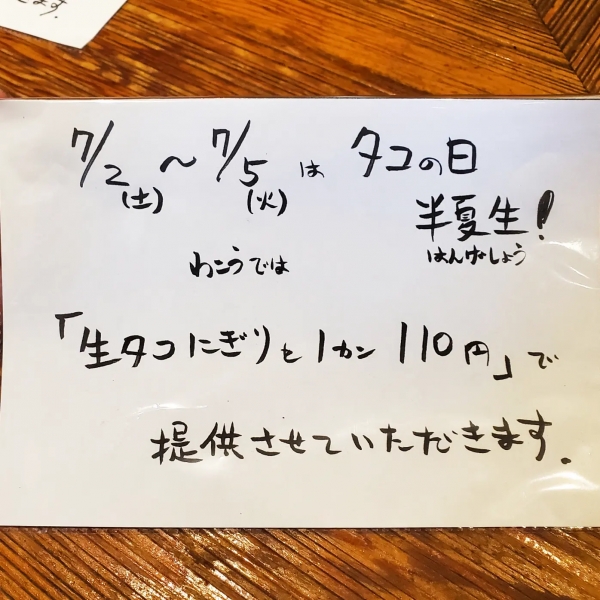 きます。
7/2(土)～7/5(火)は タコの日
半夏生!
はんげしょう
わこうでは
「生タコにぎりを1カン110円」で
提供させていただきます。